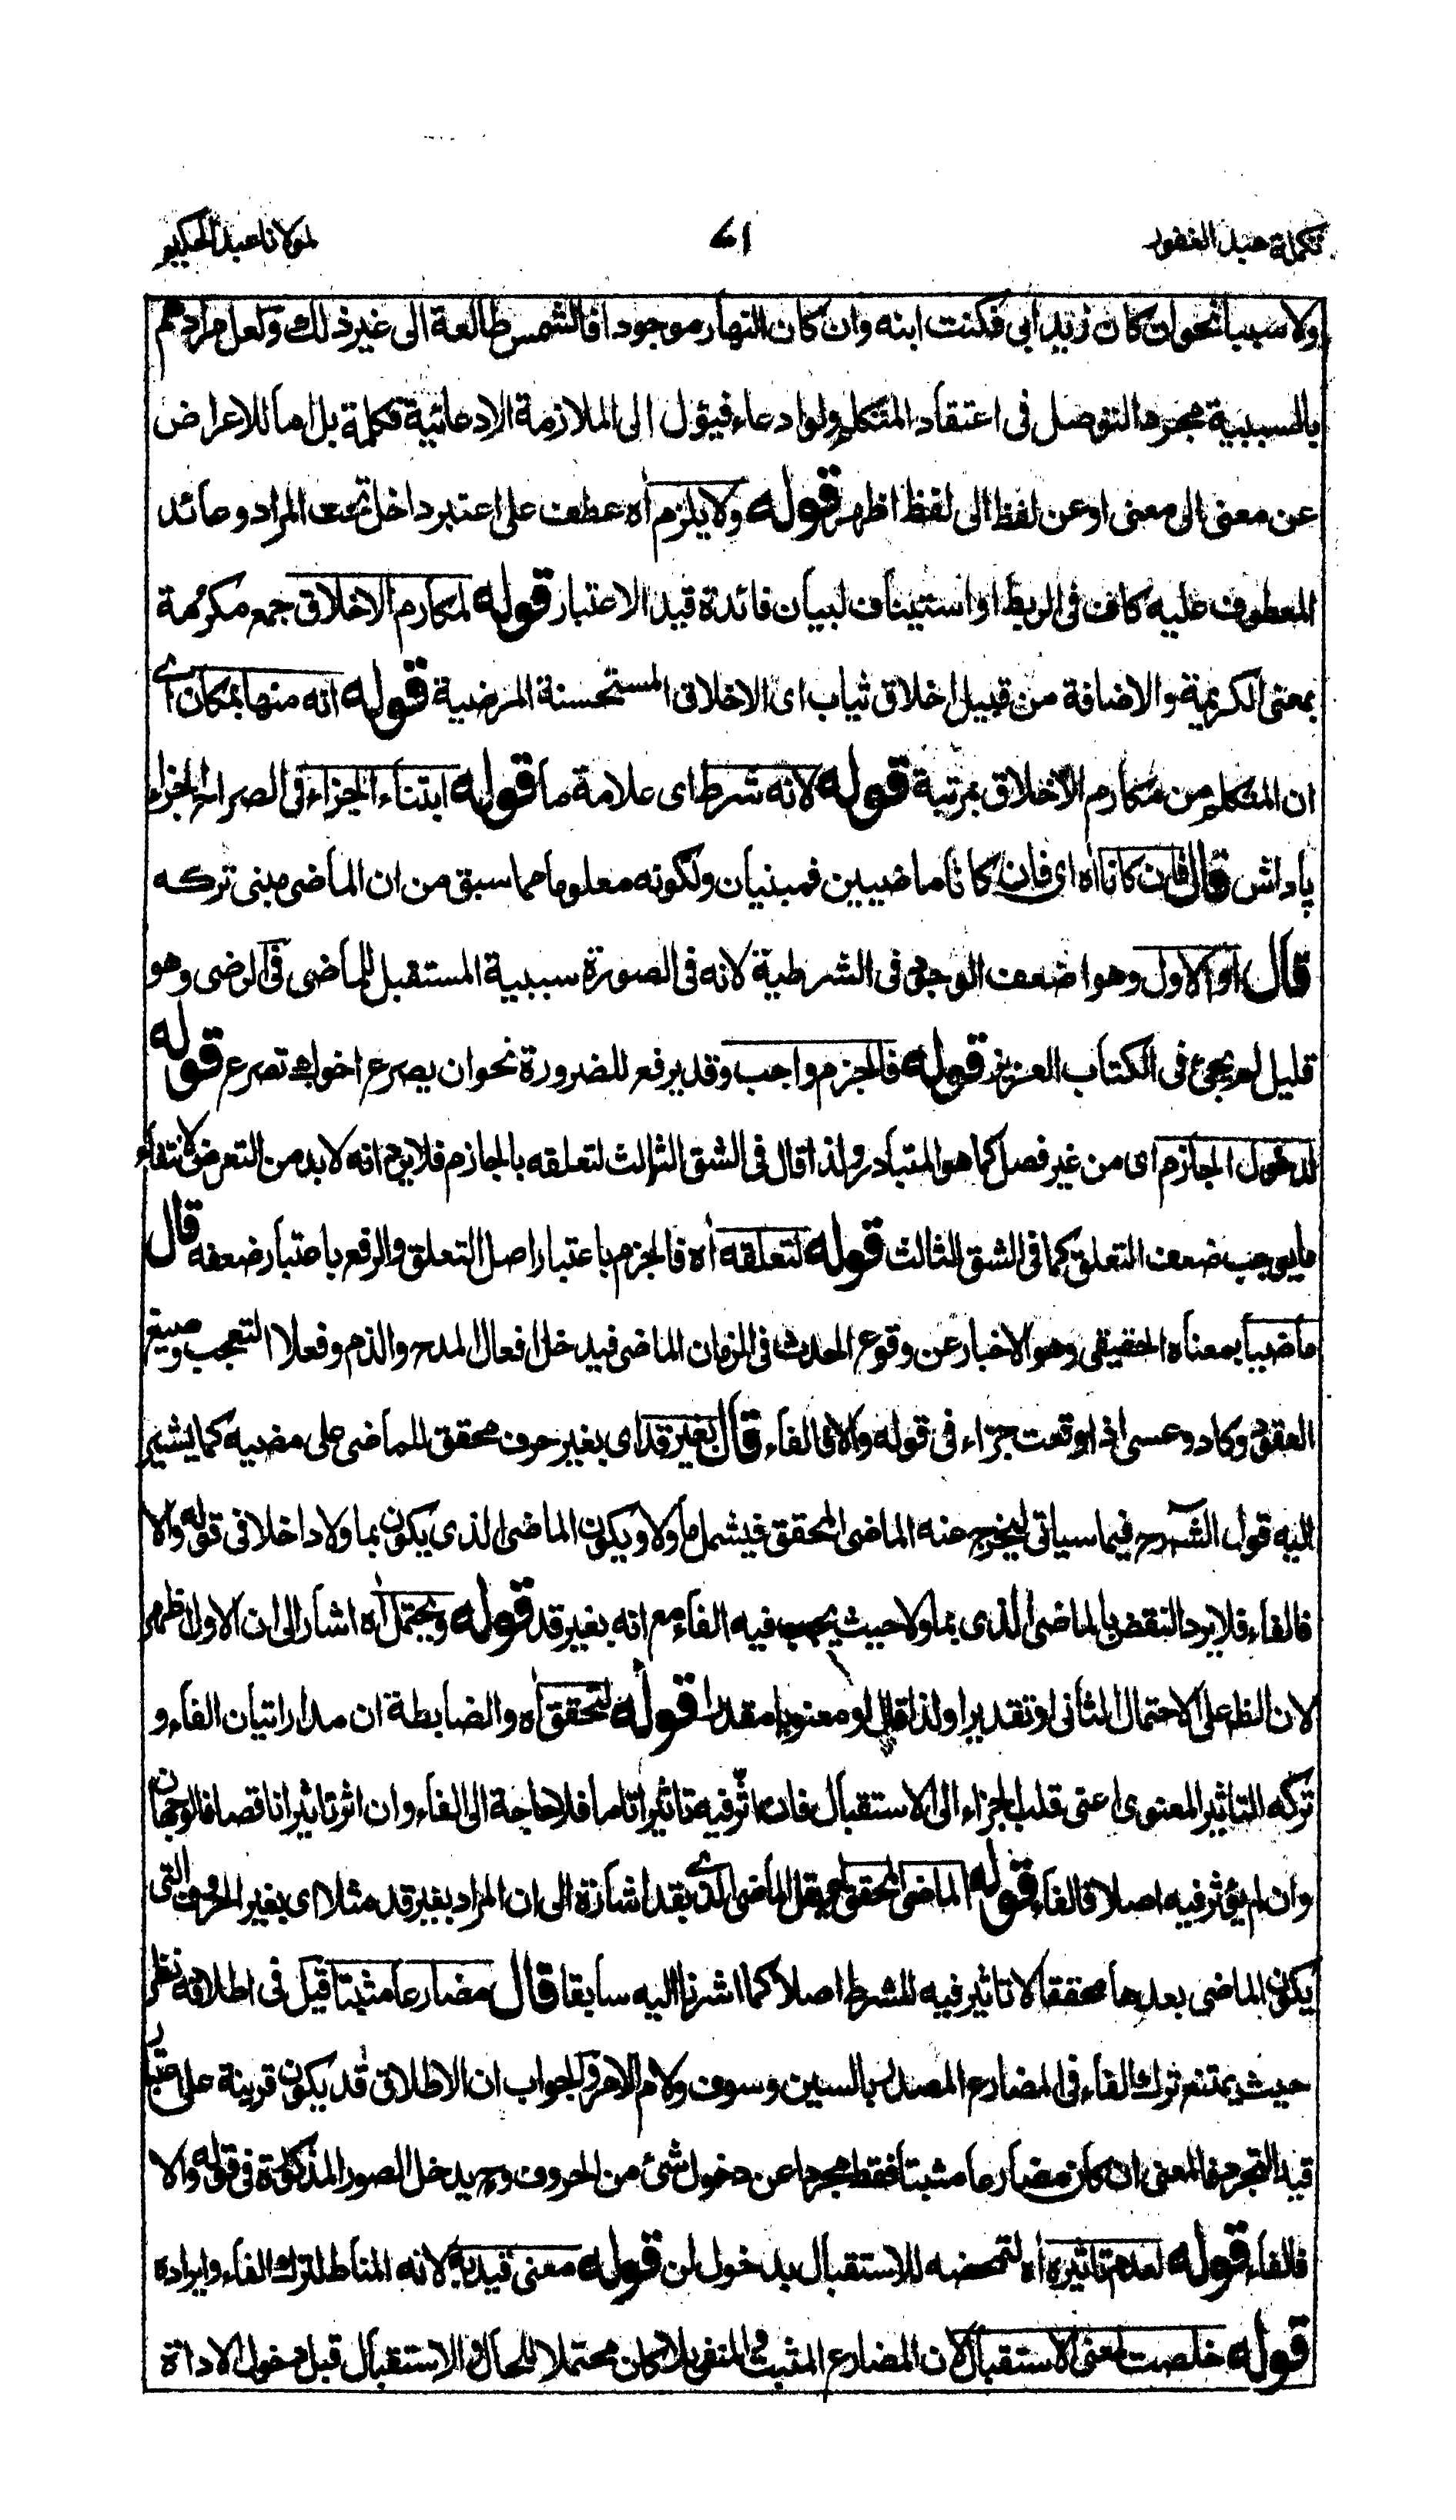 تكملة عبد الغفور
٧١
لمولانا عبد الحكيم
ولا سببا نحو ان كان زيد ابى فكنت ابنه وان كان النهار موجودا فالشمس طالعة الى غير ذلك ولعل مرادهم
بالسببية مجرد التوصل فى اعتقاد المتكلم ولو ادعاء فيؤل الى الملازمة الادعائية فكلمة بل اما للاعراض
عن معنى الى معنى او عن لفظ الى لفظ اظهر قوله ولا يلزم اه عطف على اعتبر داخل تحت المراد وعائد
المعطوف عليه كاف فى الربط او استيناف لبيان فائدة قيد الاعتبار قوله لمكارم الاخلاق جمع مكرمة
بمعنى الكريمة والاضافة من قبيل اخلاق ثياب اى الاخلاق المستحسنة المرضية قوله انه منها بمكان اى
ان المتكلم من مكارم الاخلاق بمرتبة قوله لانه شرط اى علامة ما قوله ابتناء الجزاء فى الصراح الجزاء
پاداش قال فان كانا اه اى فان كانا ماضيين فمبنيان ولكونه معلوما مما سبق من ان الماضى مبنى تركه
قال او الاول وهو اضعف الوجوه فى الشرطية لانه فى الصورة سببية المستقبل للماضى فى الرضى وهو
قليل لم يجئ فى الكتاب العزيز قوله فالجزم واجب وقد يرفع للضرورة نحو ان يصرع اخوك تصرع قوله
لدخول الجازم اى من غير فصل كما هو المتبادر ولذا قال فى الشق الثالث لتعلقه بالجازم فلا يرد انه لا بد من التعرض لانتفاء
ما يوجب ضعف التعلق كما فى الشق الثالث قوله لتعلقه اه فالجزم باعتبار اصل التعلق والرفع باعتبار ضعفه قال
ماضيا بمعناه الحقيقى وهو الاخبار عن وقوع الحدث فى الزمان الماضى فيدخل افعال المدح والذم وفعلا التعجب وصيغ
العقود وكاد وعسى اذا وقعت جزاء فى قوله والا فالفاء قال بغير قد اى بغير حرف محقق للماضى على مضيه كما يشير
اليه قول الشرح فيما سياتى ليخرج عنه الماضى المحقق فيشمل ما ولا ويكون الماضى الذى يكون بما ولا داخلا فى قوله والا
فالفاء فلا يرد النقض بالماضى الذى بما ولا حيث يجب فيه الفاء مع انه بغير قد قوله ويحتمل اه اشار الى ان الاول اظهر
لان الظ على الاحتمال الثانى او تقديرا ولذا قال او معنويا مقدرا قوله لتحقق اه والضابطة ان مدار اتيان الفاء و
تركه التاثير المعنوى اعنى قلب الجزاء الى الاستقبال فان اثّر فيه تاثيرا تاما فلا حاجة الى الفاء وان اثر تاثيرا ناقصا فالوجهان
وان لم يؤثر فيه اصلا فالفاء قوله الماضى المحقق لم يقل الماضى الذى بقد اشارة الى ان المراد بغير قد مثلا اى بغير الحروف التى
يكون الماضى بعدها محققا لا تاثير فيه للشرط اصلا كما اشرنا اليه سابقا قال مضارعا مثبتا قيل فى اطلاقه نظر
حيث يمتنع ترك الفاء فى المضارع المصدر بالسين وسوف ولام الامر والجواب ان الاطلاق قد يكون قرينة على اعتبار
قيد التجرد فالمعنى ان كان مضارعا مثبتا فقط مجردا عن دخول شئ من الحروف وح يدخل الصور المذكورة فى قوله والا
فالفاء قوله لعدم تاثيره اه لتمحضه للاستقبال بدخول لن قوله معنى قيد به لانه المناط لترك الفاء وايراده
قوله خلصت لمعنى الاستقبال لان المضارع المثبت والمنفى بلا كان محتملا للحال والاستقبال قبل دخول الاداة